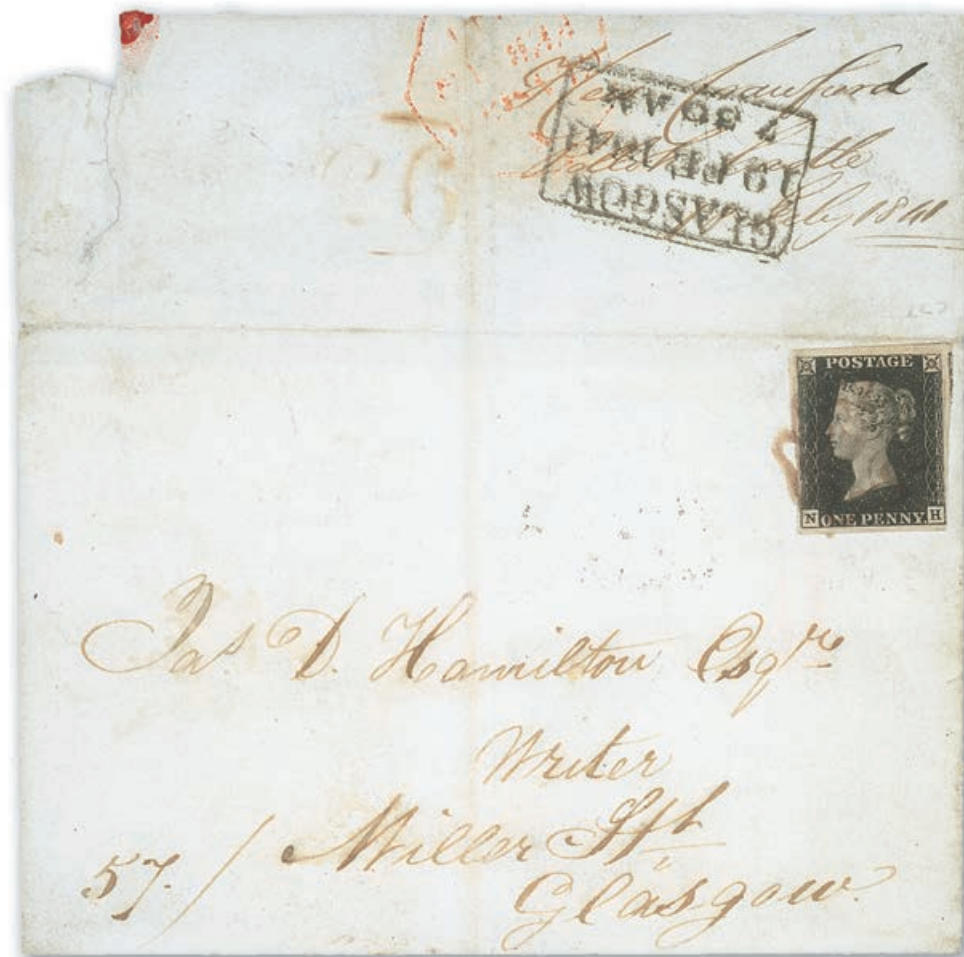 Crawford
Castle
1841
GLASGOW
19 FE 1841
7 30 AM
POSTAGE
N ONE PENNY. H
Jas D. Hamilton Esqre
Writer
57. / Miller Stt
Glasgow.